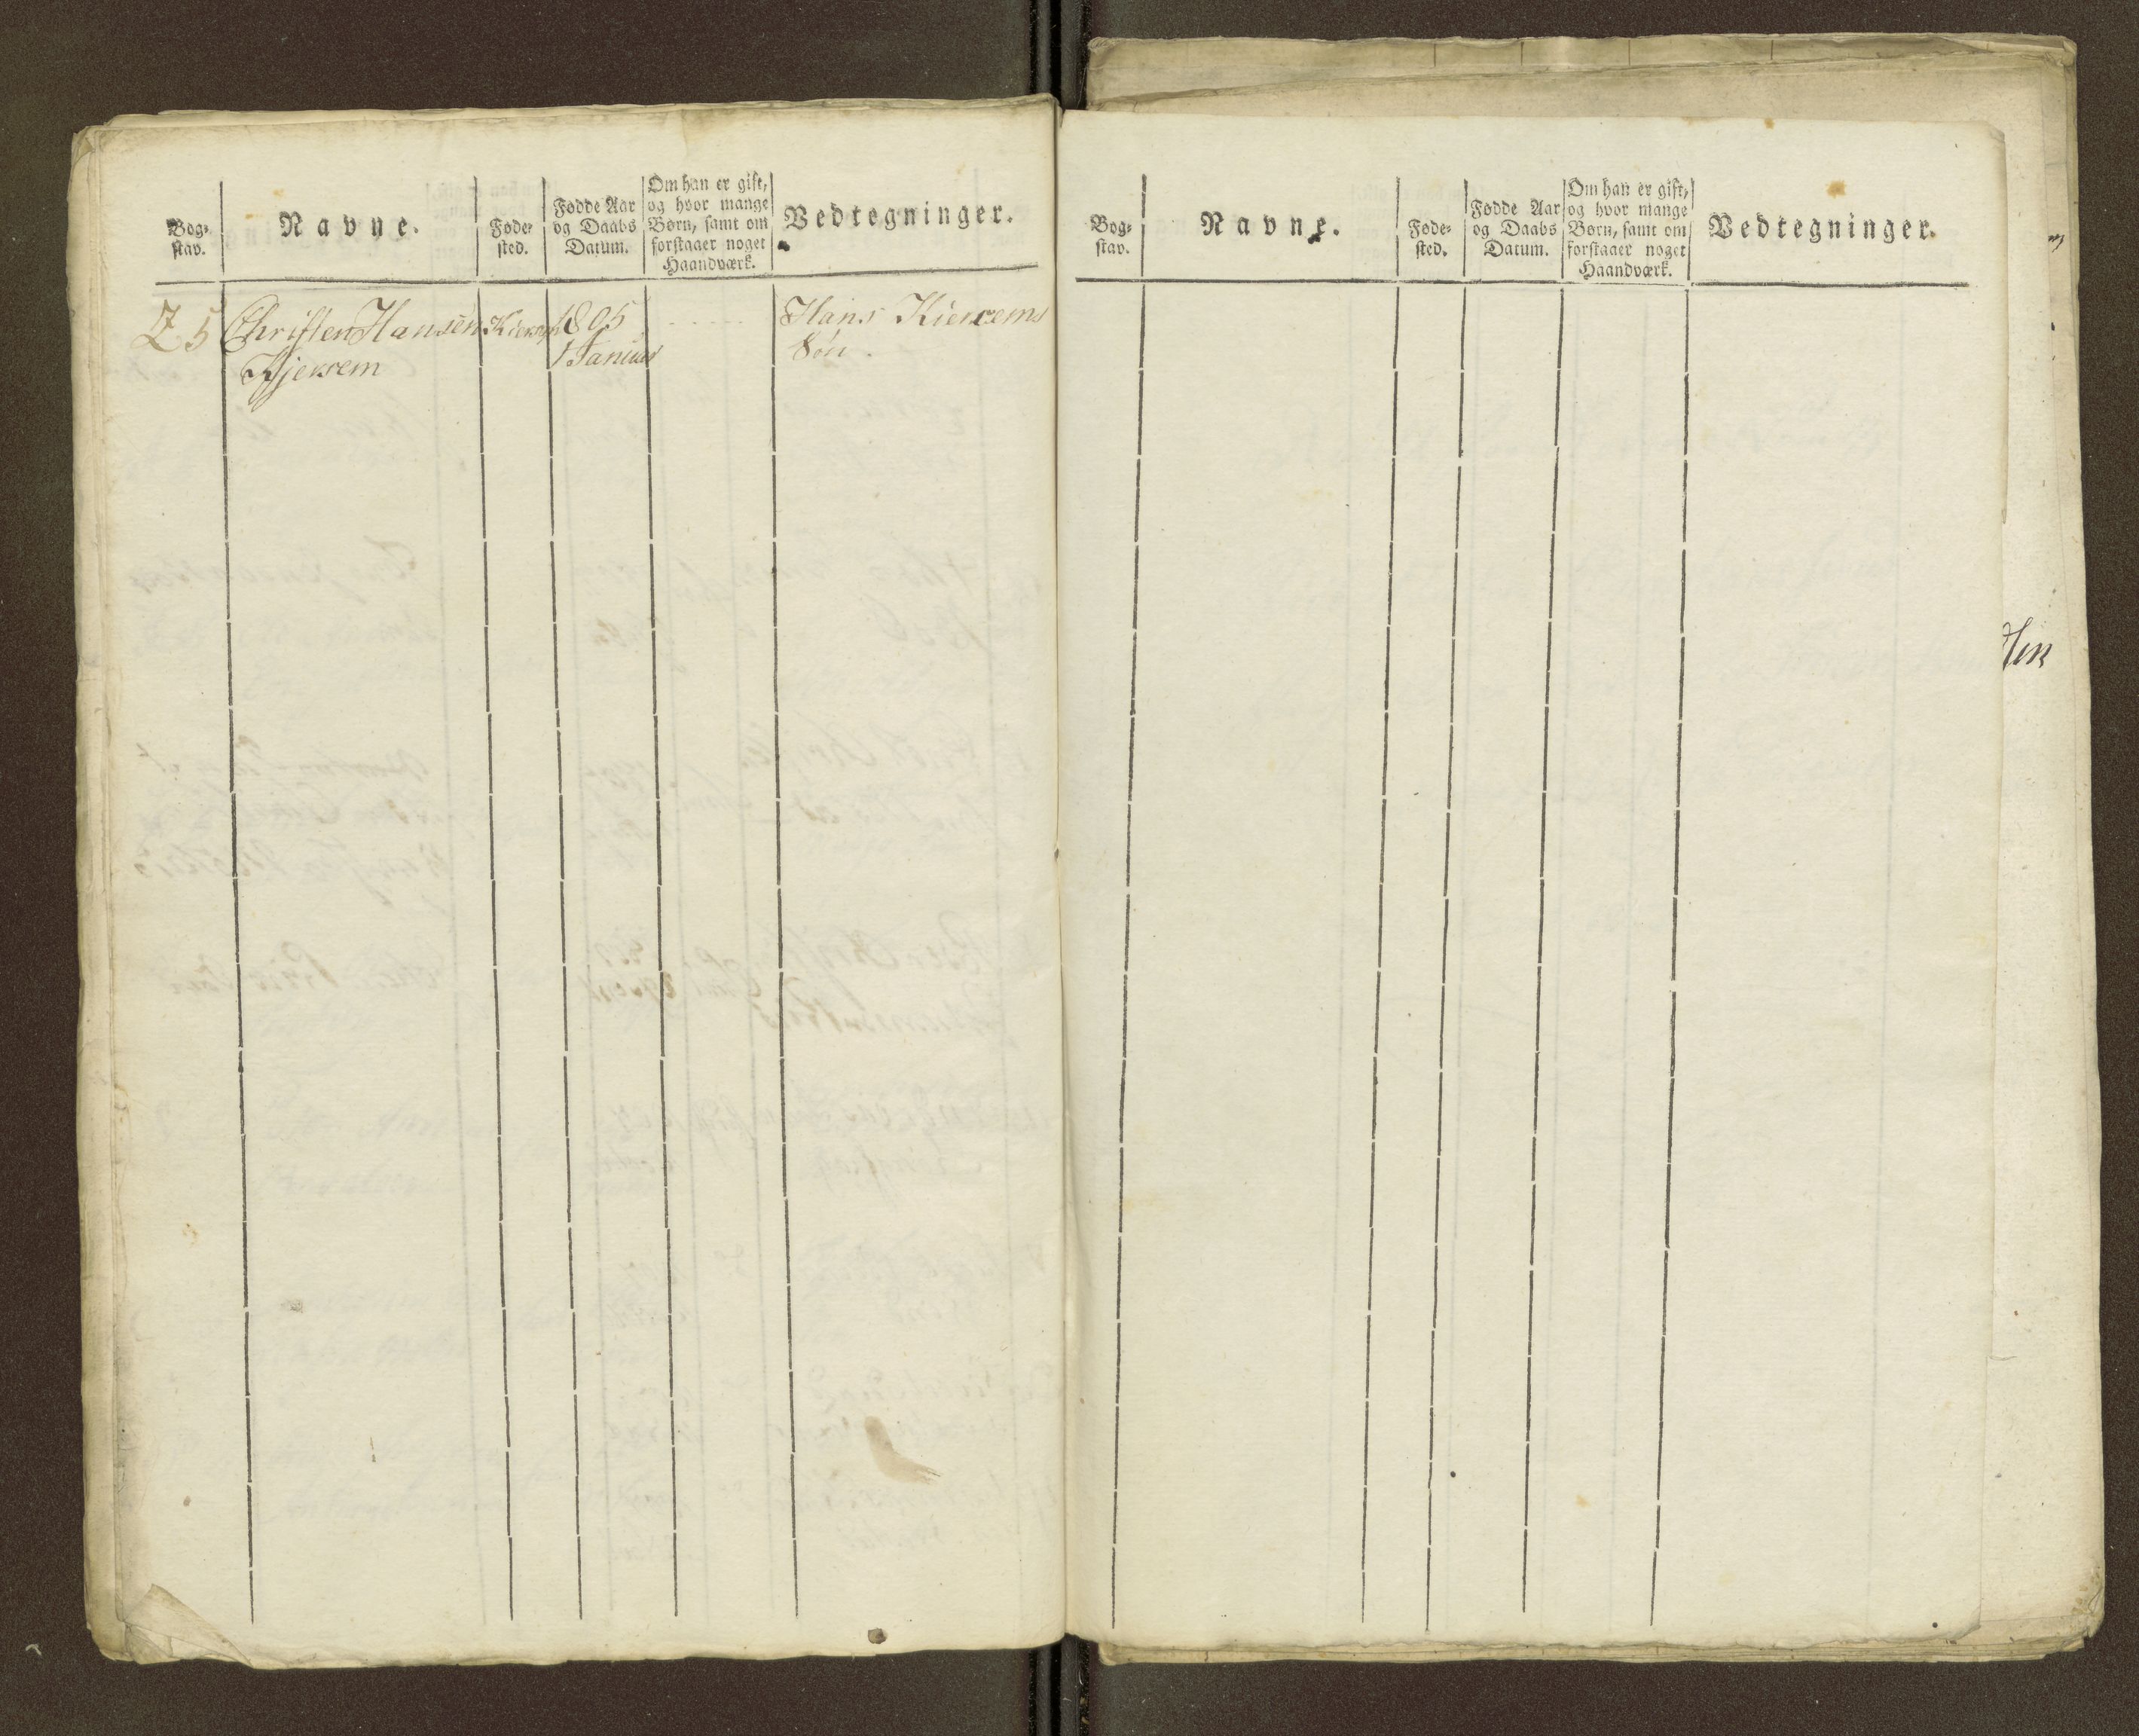 Bog-
stav.
Navne.
Føde-
sted.
Fødde Aar
og Daabs
Datum.
Om han er gift,
og hvor mange
Børn, samt om
forstaaer noget
Haandværk.
Vedtegninger.
Z 5 Christen Hansen 1805 Hans Kierems
Kjersem 1 Janius Søn.
Bog-
stav.
Navne.
Føde-
sted.
Fødde Aar
og Daabs
Datum.
Om han er gift,
og hvor mange
Børn, samt om
forstaaer noget
Haandværk.
Vedtegninger.